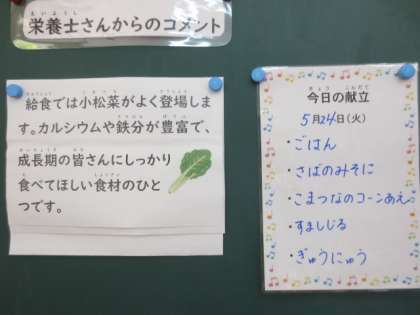 栄養士さんからのコメント
給食では小松菜がよく登場しま
す。カルシウムや鉄分が豊富で、
成長期の皆さんにしっかり
食べてほしい食材のひと
つです。
今日の献立
5月24日(火)
・ごはん
・さばのみそに
・こまつなのコーンあえ
・すましじる
・ぎゅうにゅう